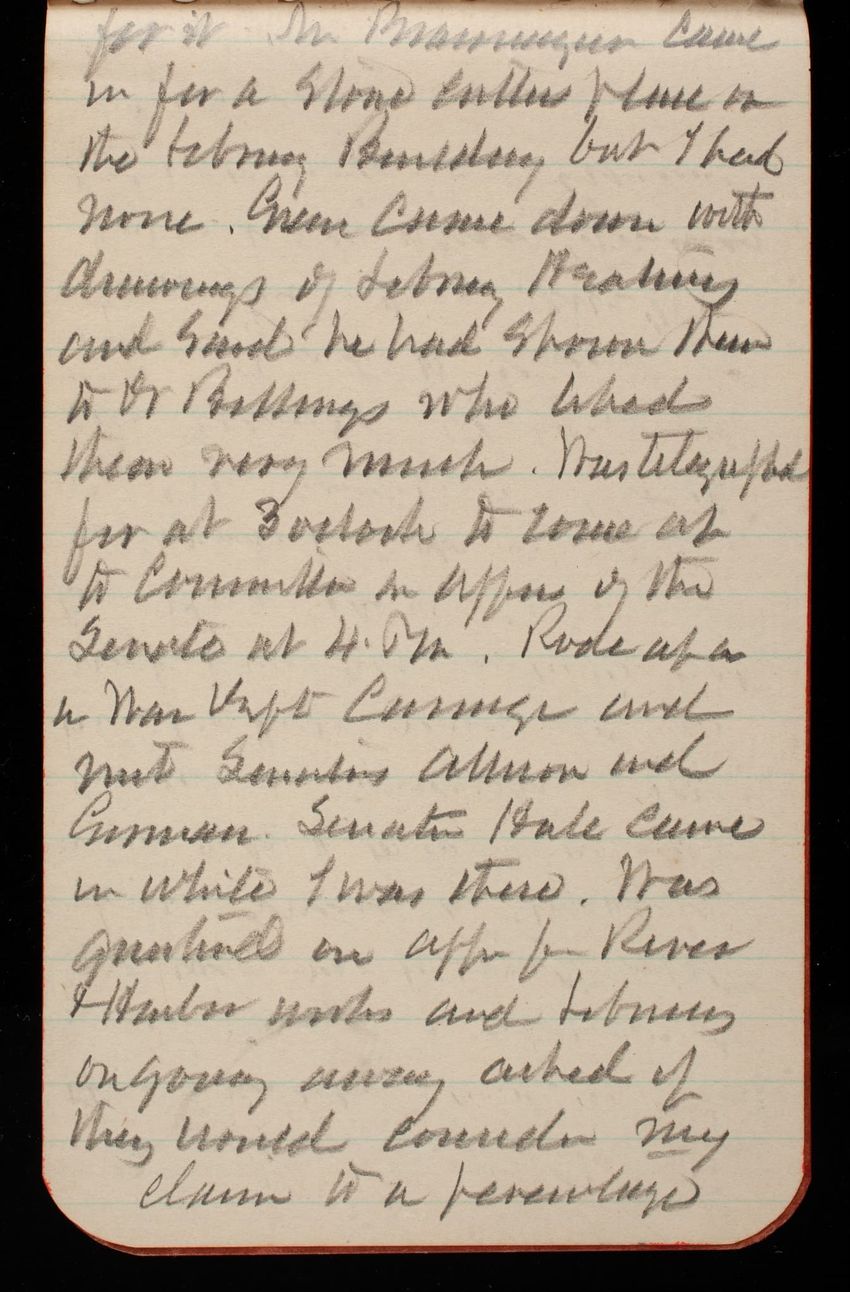 for it Mr Brannigan came
in for a Stone Cutters place on
the Library Building but I had
none. Green Came down with
drawings of Library Heating
and Said he had Shown them
to Dr Billings who liked
them very much. Was telegraphed
for at 3 oclock to come up
to Committee on Appns of the
Senate at 4. PM. Rode up in
a War Dept Carriage and
met Senators Allison and
Gorman. Senator Hale came
in while I was there. Was
questioned on appn for River
& Harbor works and Library
on going away asked if
they would consider my
claim to a percentage